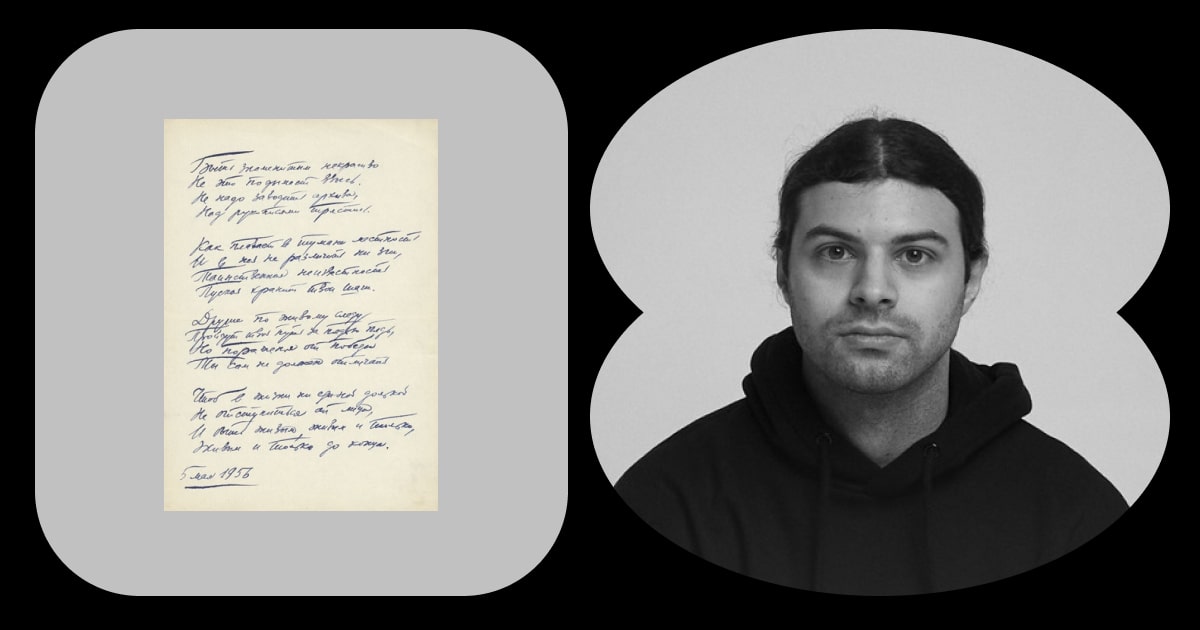 Быть знаменитым некрасиво
Не это подымает ввысь.
Не надо заводить архивы,
Над рукописями трястись.
Как плавает в тумане местность
И в ней не различить ни зги,
Таинственная неизвестность
Пускай хранит твои шаги.
Другие по живому следу
Пройдут твой путь за пядью пядь,
Но пораженья от победы
Ты сам не должен отличать
в жизни ни единой долькой
Не отступиться от лица,
И быть живым живым и только,
Живым и только до конца.
5 мая 1956